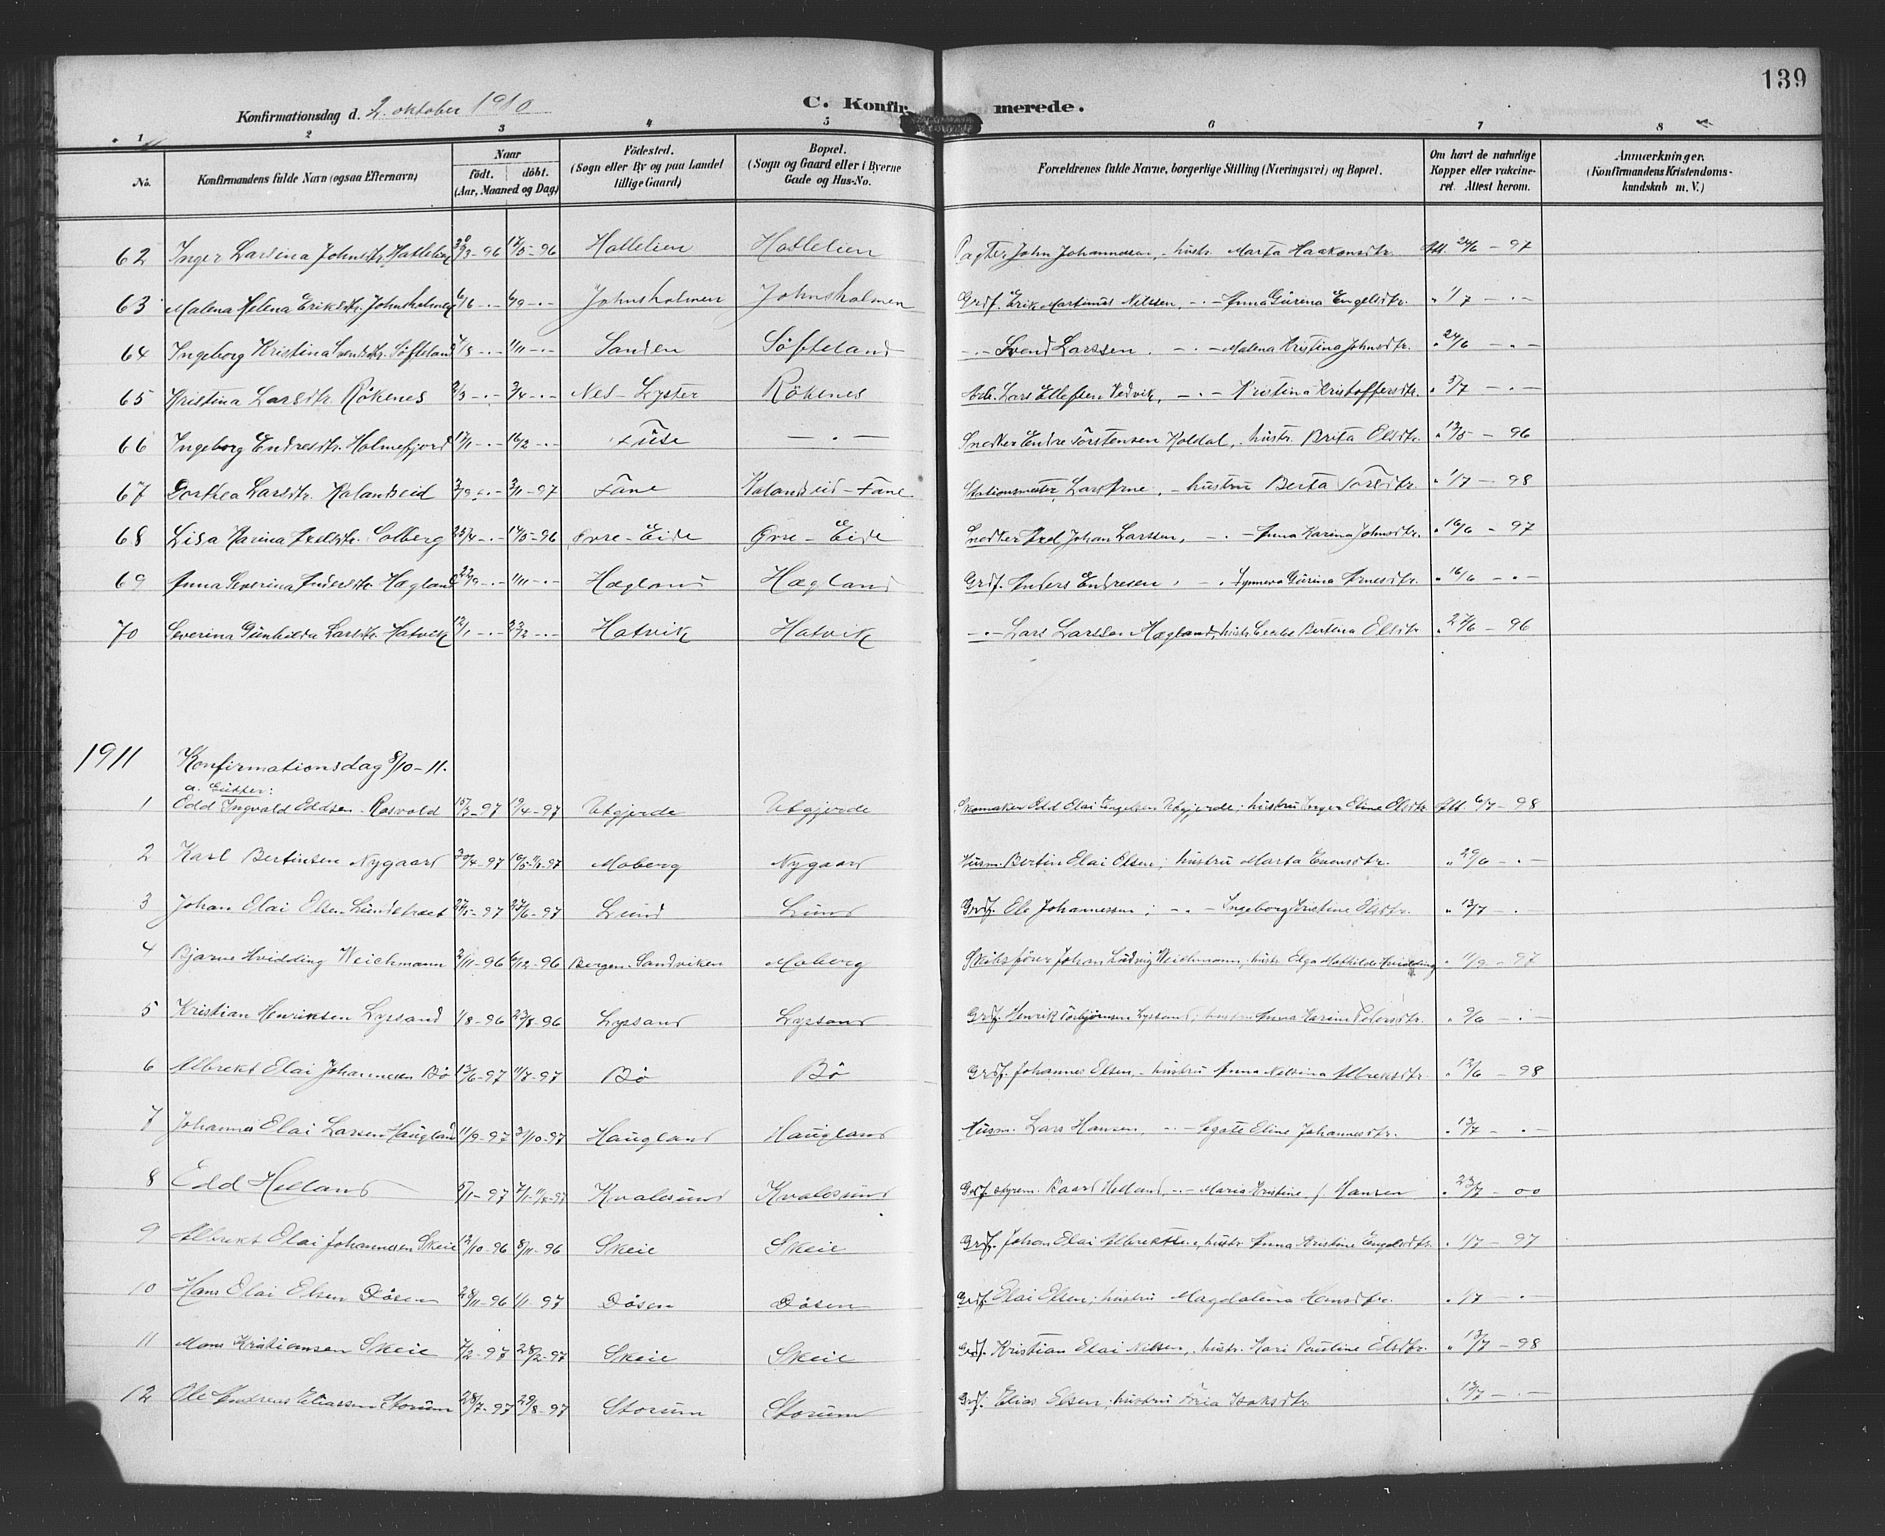 139
Konfirmationsdag d. 2. oktober 1910
C. Konfirmerede.
1 2 3 4 5 6 7 8
No. Konfirmandens fulde Navn (ogsaa Efternavn) Naar födt. döbt. (Aar, Maaned og Dag) Födested. (Sogn eller By og paa Landet tillige Gaard) Bopæl. (Sogn og Gaard eller i Byerne Gade og Hus-No. Forældrenes fulde Navne, borgerlige Stilling (Næringsvei) og Bopæl. Om havt de naturlige Kopper eller vakcineret. Attest herom. Anmærkninger. (Konfirmandens Kristendomskundskab m. V.)
62 Inger Larsina Johnsdtr. 96 17/5-96 Hattelien Hattelien John Johannesen, hustr. Marta Haakonsdtr. Att. 24/6 - 97
63 Malena Helena Eriksdtr. Johnsholmen 6/6 -.- 6/9 -.- Johnsholmen Johnsholmen Grdf. Erik Martinus Nilssen, -.- Anna Gürina Engelsdtr. " 1/7 -.-
64 Ingeborg Kristina Svendsdtr. Søfteland -.- 1/11 -.- Sanden Søfteland -.- Svend Larssen. -.- Malena Kristina Johnsdtr. " 24/6 -.-
65 Kristina Larsdtr. Røkenes -.- 3/4 -.- Nes - Lyster Røkenes Arb. Lars Ellefsen Vedvik, -.- Kristina Kristoffersdtr. " 3/7 -.-
66 Ingeborg Endresdtr. Holmefjord 17/1 -.- 16/2 -.- Füse -.- Snedker Endre Torstensen Koldal, hustr. Brita Olsdtr. " 13/5 - 96
67 Dorthea Larsdtr. Kalandseid -.- 3/1-97 Fane Kalandseid - Fane Stationsmester Lars Arne, - hustru Berta " 1/7 - 98
68 Lisa Karina Axelsdtr. Solberg 25/4 -.- 17/5-96 Øvre-Eide Øvre-Eide Snedker Axel Johan Larssen, -.- Anna Karina Johnsdtr. " 16/6 - 97
69 Anna Severina Andersdtr. Hægland 22/9 -.- 1/11 -.- Hægland Hægland Grdf. Anders Endresen, Synneva Gürina Arnesdtr. " 16/6 -.-
70 Severina Günhilda Larsdtr. Hatvik 12/1 -.- 23/2 -.- Hatvik Hatvik -.- Lars Larssen Hægland, hustr. Bertina Olsdtr. " 27/6 - 96
1911 Konfirmationsdag 8/10-11.
a. Gütter:
1 Odd Ingvald Oddsen Rosvold 15/3-97 19/4-97 Utgjerde Utgjerde Skomaker Odd Elai Engelsen Utgjerde; hustru Inger Eline Olsdtr. Att. 6/7 - 98
2 Karl Bertinsen Nygaard 30/4-97 Moberg Nygaard Husm. Bertin Elai Olsen; hustru Marta Evensdtr. " 29/6 -.-
3 Johan Elai Olsen 97 27/6-97 Lund Lund Grdf. Ole Johannessen; -.- Ingeborg Kristine Olsdtr. " 13/7 -.-
4 Bjarne Hvidding Weichmann 2/11-96 6/12-96 Bergen Sandviken Moberg Skibsfører Johan Ludvig Weichmann, hustr. Olga Mathilde Hvidding " 11/9 - 97
5 Kristian Henriksen Lysand 1/8-96 23/8-96 Lysand Lysand Grdf. Henrik Torbjørnsen Lysand; hustru Anna Karina Pedersdtr. " 9/6 -.-
6 Albrekt Elai Johannesen Bø 13/6-97 11/7-97 Bø Bø Grdf. Johannes Olsen, hustru Anna Nilsina Albrektsdtr. " 13/6 - 98
7 Johannes Elai Larsen Haugland 11/9-97 31/10-97 Haugland Haugland Husm. Lars Hansen, -.- Eline Johannesdtr. " 13/7 -.-
8 Odd Helland 5/1-97 Kvalesund Kvalesund Grdf. Baard Helland, -.- Maria Kristine f. Hansen " 23/7 - 00
9 Albrekt Elai Johannesen Skeie 12/10-96 8/11-96 Skeie Skeie Grdf. Johan Elai Albrektsen, hustr. Anna Kristine Engelsdtr. " 1/7 - 97
10 Hans Elai Olsen Døsen 28/11-96 1/1-97 Døsen Døsen Grdf. Elai Olsen; hustru Magdalena Hansdtr. " 1/7 -.-
11 Mons Kristiansen Skeie 7/2-97 28/2-97 Skeie Skeie Grdf. Kristian Elai Nilsen, hustr. Kari Pauline Olsdtr. " 13/7 - 98
12 Ole Andreas Eliassen Storum 28/7-97 29/8-97 Storum Storum Grdf. Elias Olsen; hustru Isaksdtr. " 13/7 -.-